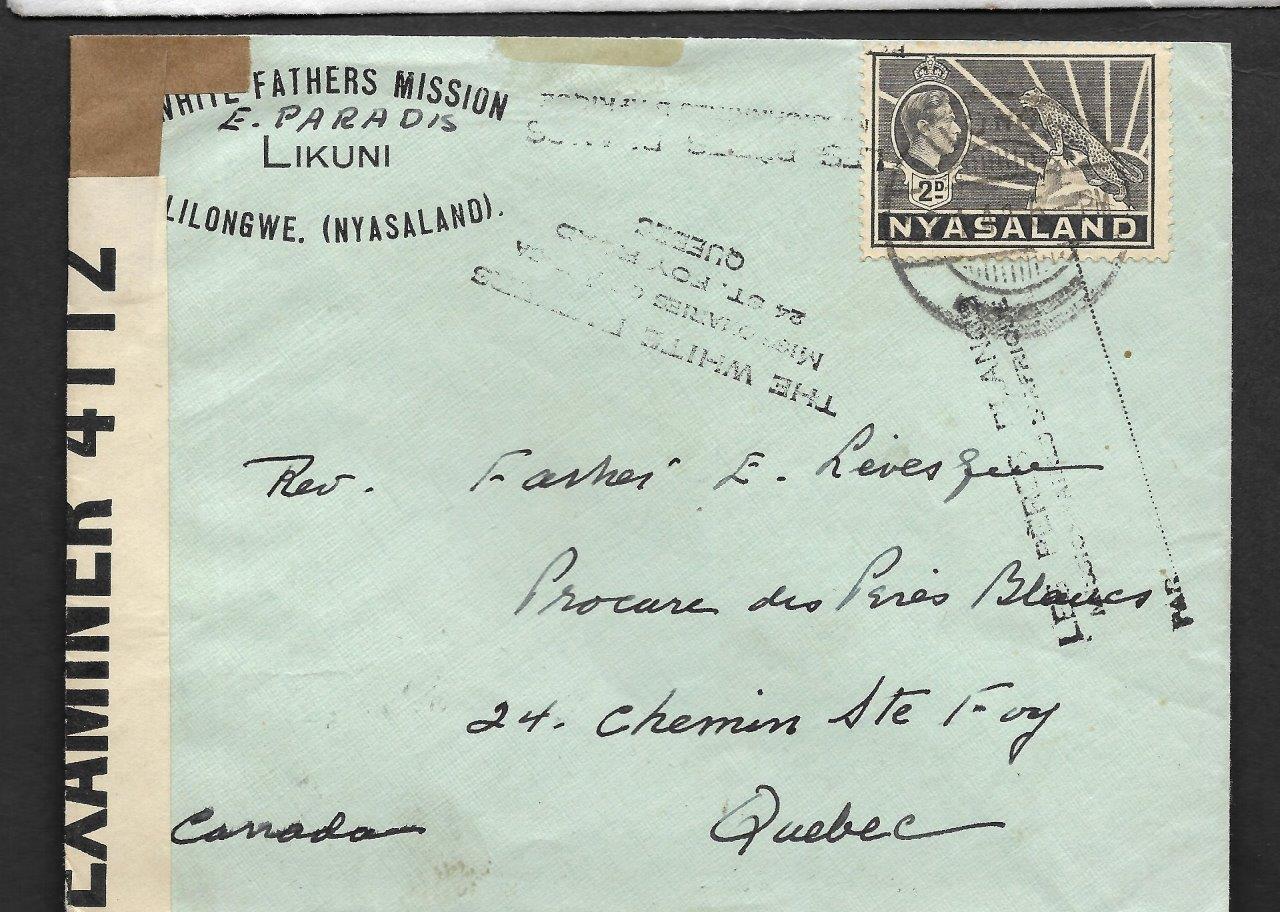 WHITE FATHERS MISSION
E. PARADIS
LIKUNI
LILONGWE. (NYASALAND).
2D
NYASALAND
EXAMINER 4112
THE WHITE
24 ST. FOY ROAD
QUEBEC
LES PERES BLANCS
PAR
Rev. Father E. Levesque
Procure des Peres Blancs
24. Chemin Ste Foy
Quebec
Canada